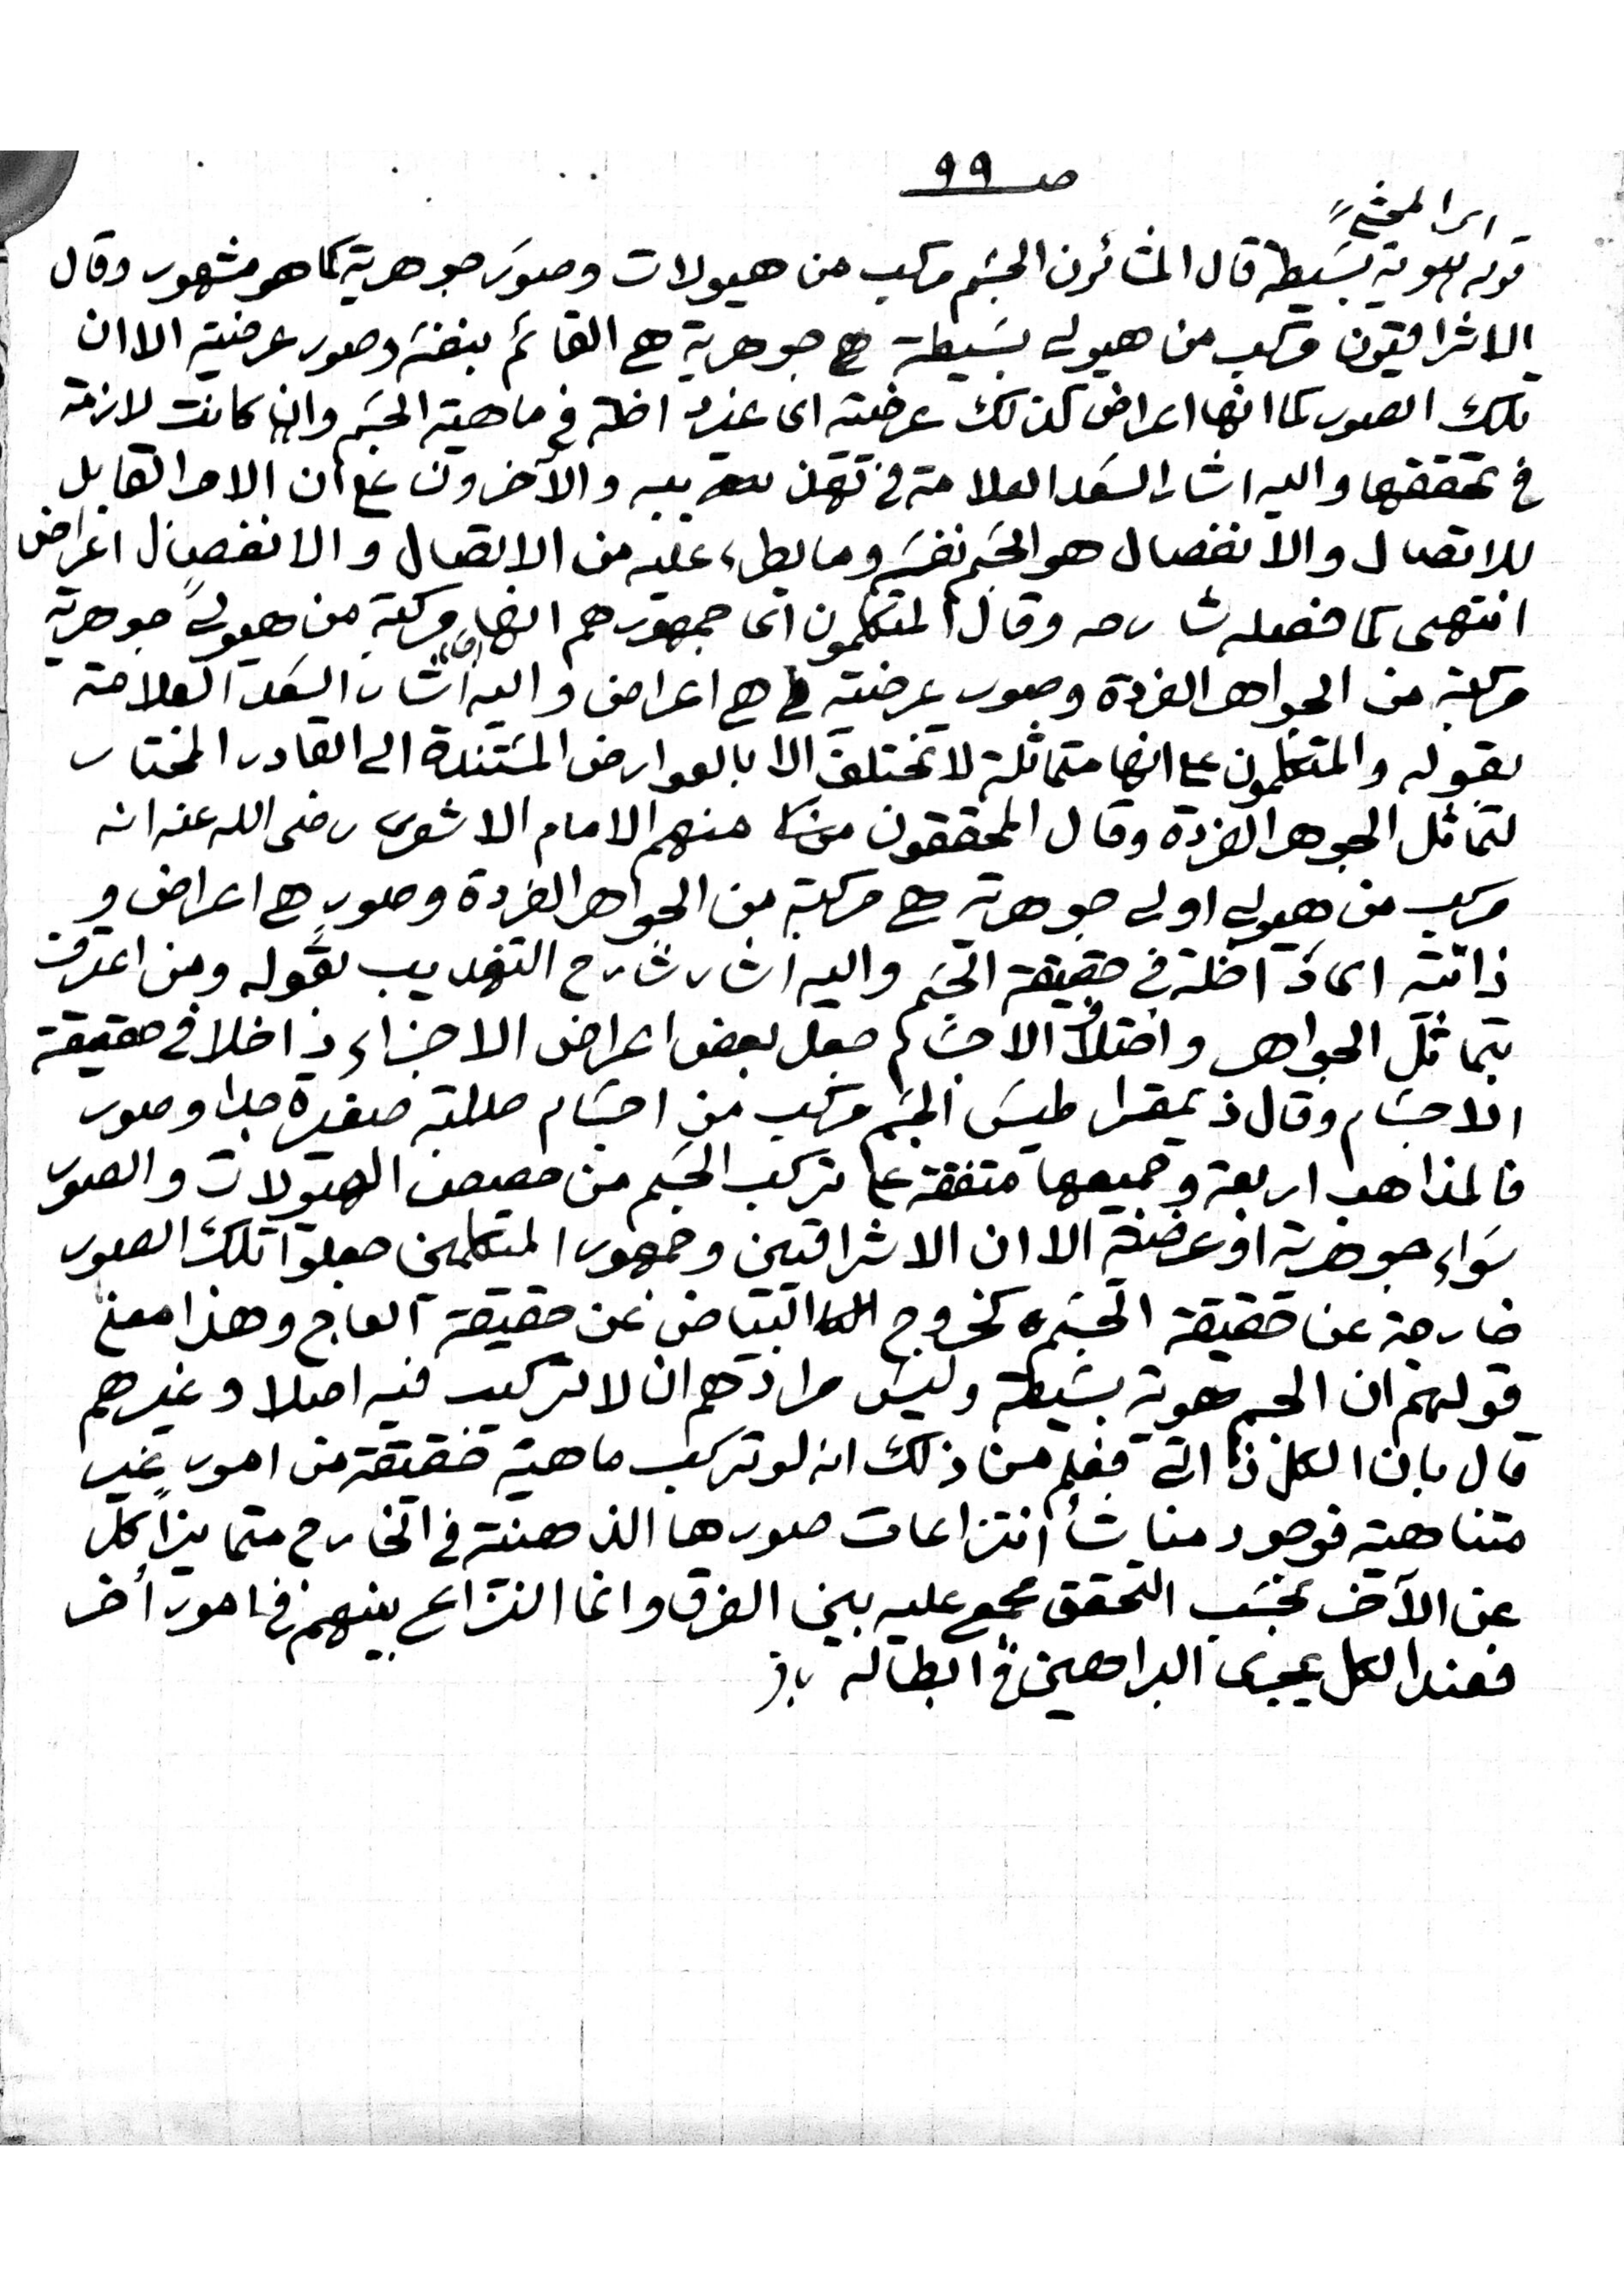 صـ ٩٩
اى المحشى
قوله هوية بسيطة قال المشائون الجسم مركب من هيولات وصور جوهرية كما هو مشهور وقال
الاشراقيون مركب من هيولى بسيطة جوهرية هى القائم بنفسه وصور عرضية الا ان
تلك الصور كما انها اعراض كذلك عرضية اى غير داخلة فى ماهية الجسم وان كانت لازمة
فى تحققها واليه اشار السعد العلامة فى تهذيبه والآخرون على ان الامر القابل
للاتصال والانفصال هو الجسم نفسه وما يطرء عليه من الاتصال والانفصال اعراض
انتهى كما فصله شارحه وقال المتكلمون اى جمهورهم انها مركبة من هيولى جوهرية
مركبة من الجواهر الفردة وصور عرضية هى اعراض واليه اشار السعد العلامة
بقوله والمتكلمون على انها متماثلة لا تختلف الا بالعوارض المستندة الى القادر المختار
لتماثل الجوهر الفردة وقال المحققون منهم الامام الاشعرى رضى الله عنه انه
مركب من هيولى اولى جوهرية هى مركبة من الجواهر الفردة وصور هى اعراض و
ذاتية اى داخلة فى حقيقة الجسم واليه اشار شارح التهذيب بقوله ومن اعترف
بتماثل الجواهر واختلاف الاجسام جعل بعض اعراض الاجزاء داخلا فى حقيقة
الاجسام وقال ذيمقراطيس الجسم مركب من اجسام صلبة صغيرة جدا وصور
فالمذاهب اربعة وجميعها متفقة على تركب الجسم من حصص الهيولات والصور
سواء جوهرية او عرضية الا ان الاشراقيين وجمهور المتكلمين جعلوا تلك الصور
خارجة عن حقيقة الجسم كخروج البياض عن حقيقة العاج وهذا معنى
قولهم ان الجسم هوية بسيطة وليس مرادهم ان لا تركيب فيه اصلا وغيرهم
قال بان الكل ذاتى فعلم من ذلك انه لو تركب ماهية حقيقة من امور غير
متناهية فوجود مناشأ انتزاعات صورها الذهنية فى الخارج متمايزا كل
عن الآخر بحسب التحقق مجمع عليه بين الفرق وانما النزاع بينهم فى امور أخر
فعند الكل يجرى البراهين فى ابطاله